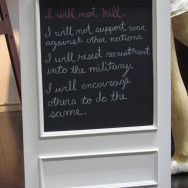 I will not kill.
I will not support war
against other nations.
I will resist recruitment
into the military.
I will encourage
others to do the
same.